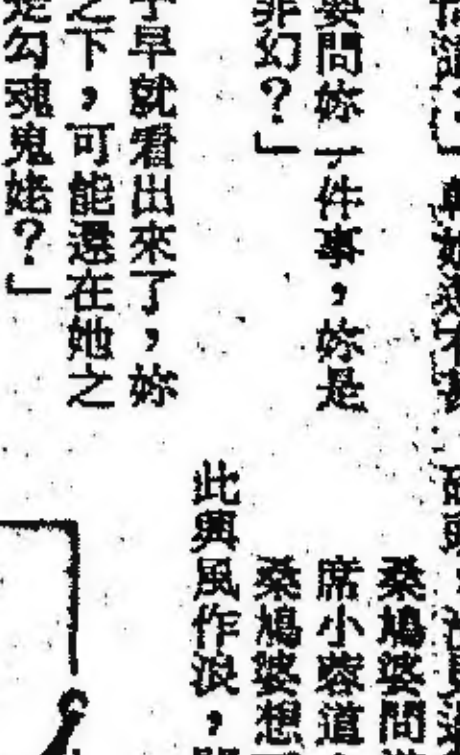 要問妳一件事，妳是
非幻？」
早就看出來了，妳
之下，可能還在她之
是勾魂鬼姥？」
桑鳩婆問
席小蓉道
桑鳩婆想
此興風作浪，